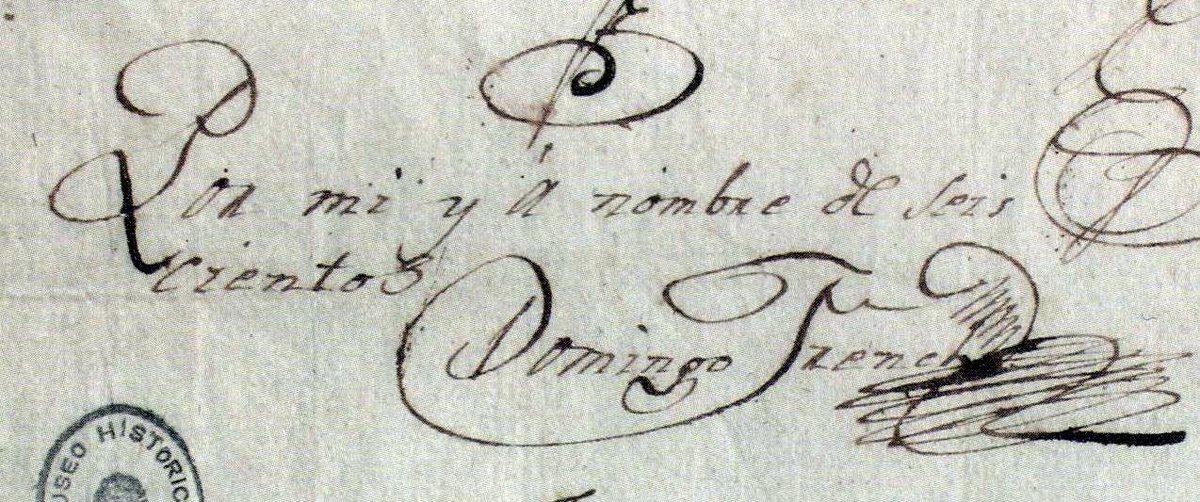 Por mi y á nombre de seis
cientos
Domingo French
MUSEO HISTORICO